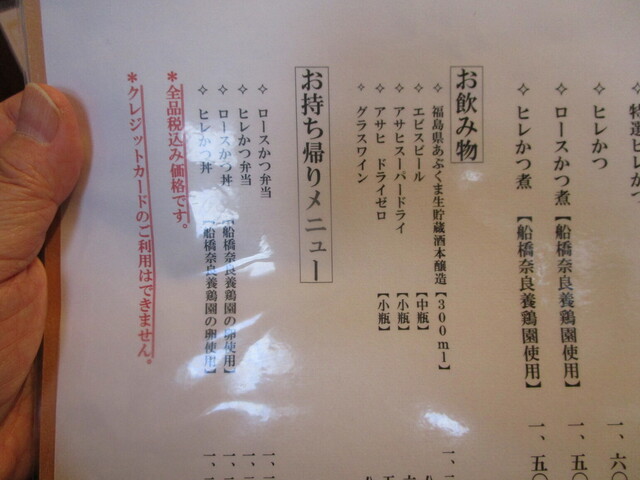 ✧ 特選ヒレかつ
✧ ヒレかつ 一、六〇
✧ ロースかつ煮【船橋奈良養鶏園使用】 一、五〇
✧ ヒレかつ煮【船橋奈良養鶏園使用】 一、五〇
お飲み物
✧ 福島県あぶくま生貯蔵酒本醸造【300ml】 一、
✧ エビスビール【中瓶】
✧ アサヒスーパードライ【小瓶】
✧ アサヒ ドライゼロ【小瓶】
✧ グラスワイン
お持ち帰りメニュー
✧ ロースかつ弁当 一、
✧ ヒレかつ弁当 一、
✧ ロースかつ丼【船橋奈良養鶏園の卵使用】 一、
✧ ヒレかつ丼【船橋奈良養鶏園の卵使用】 一、
*全品税込み価格です。
*クレジットカードのご利用はできません。